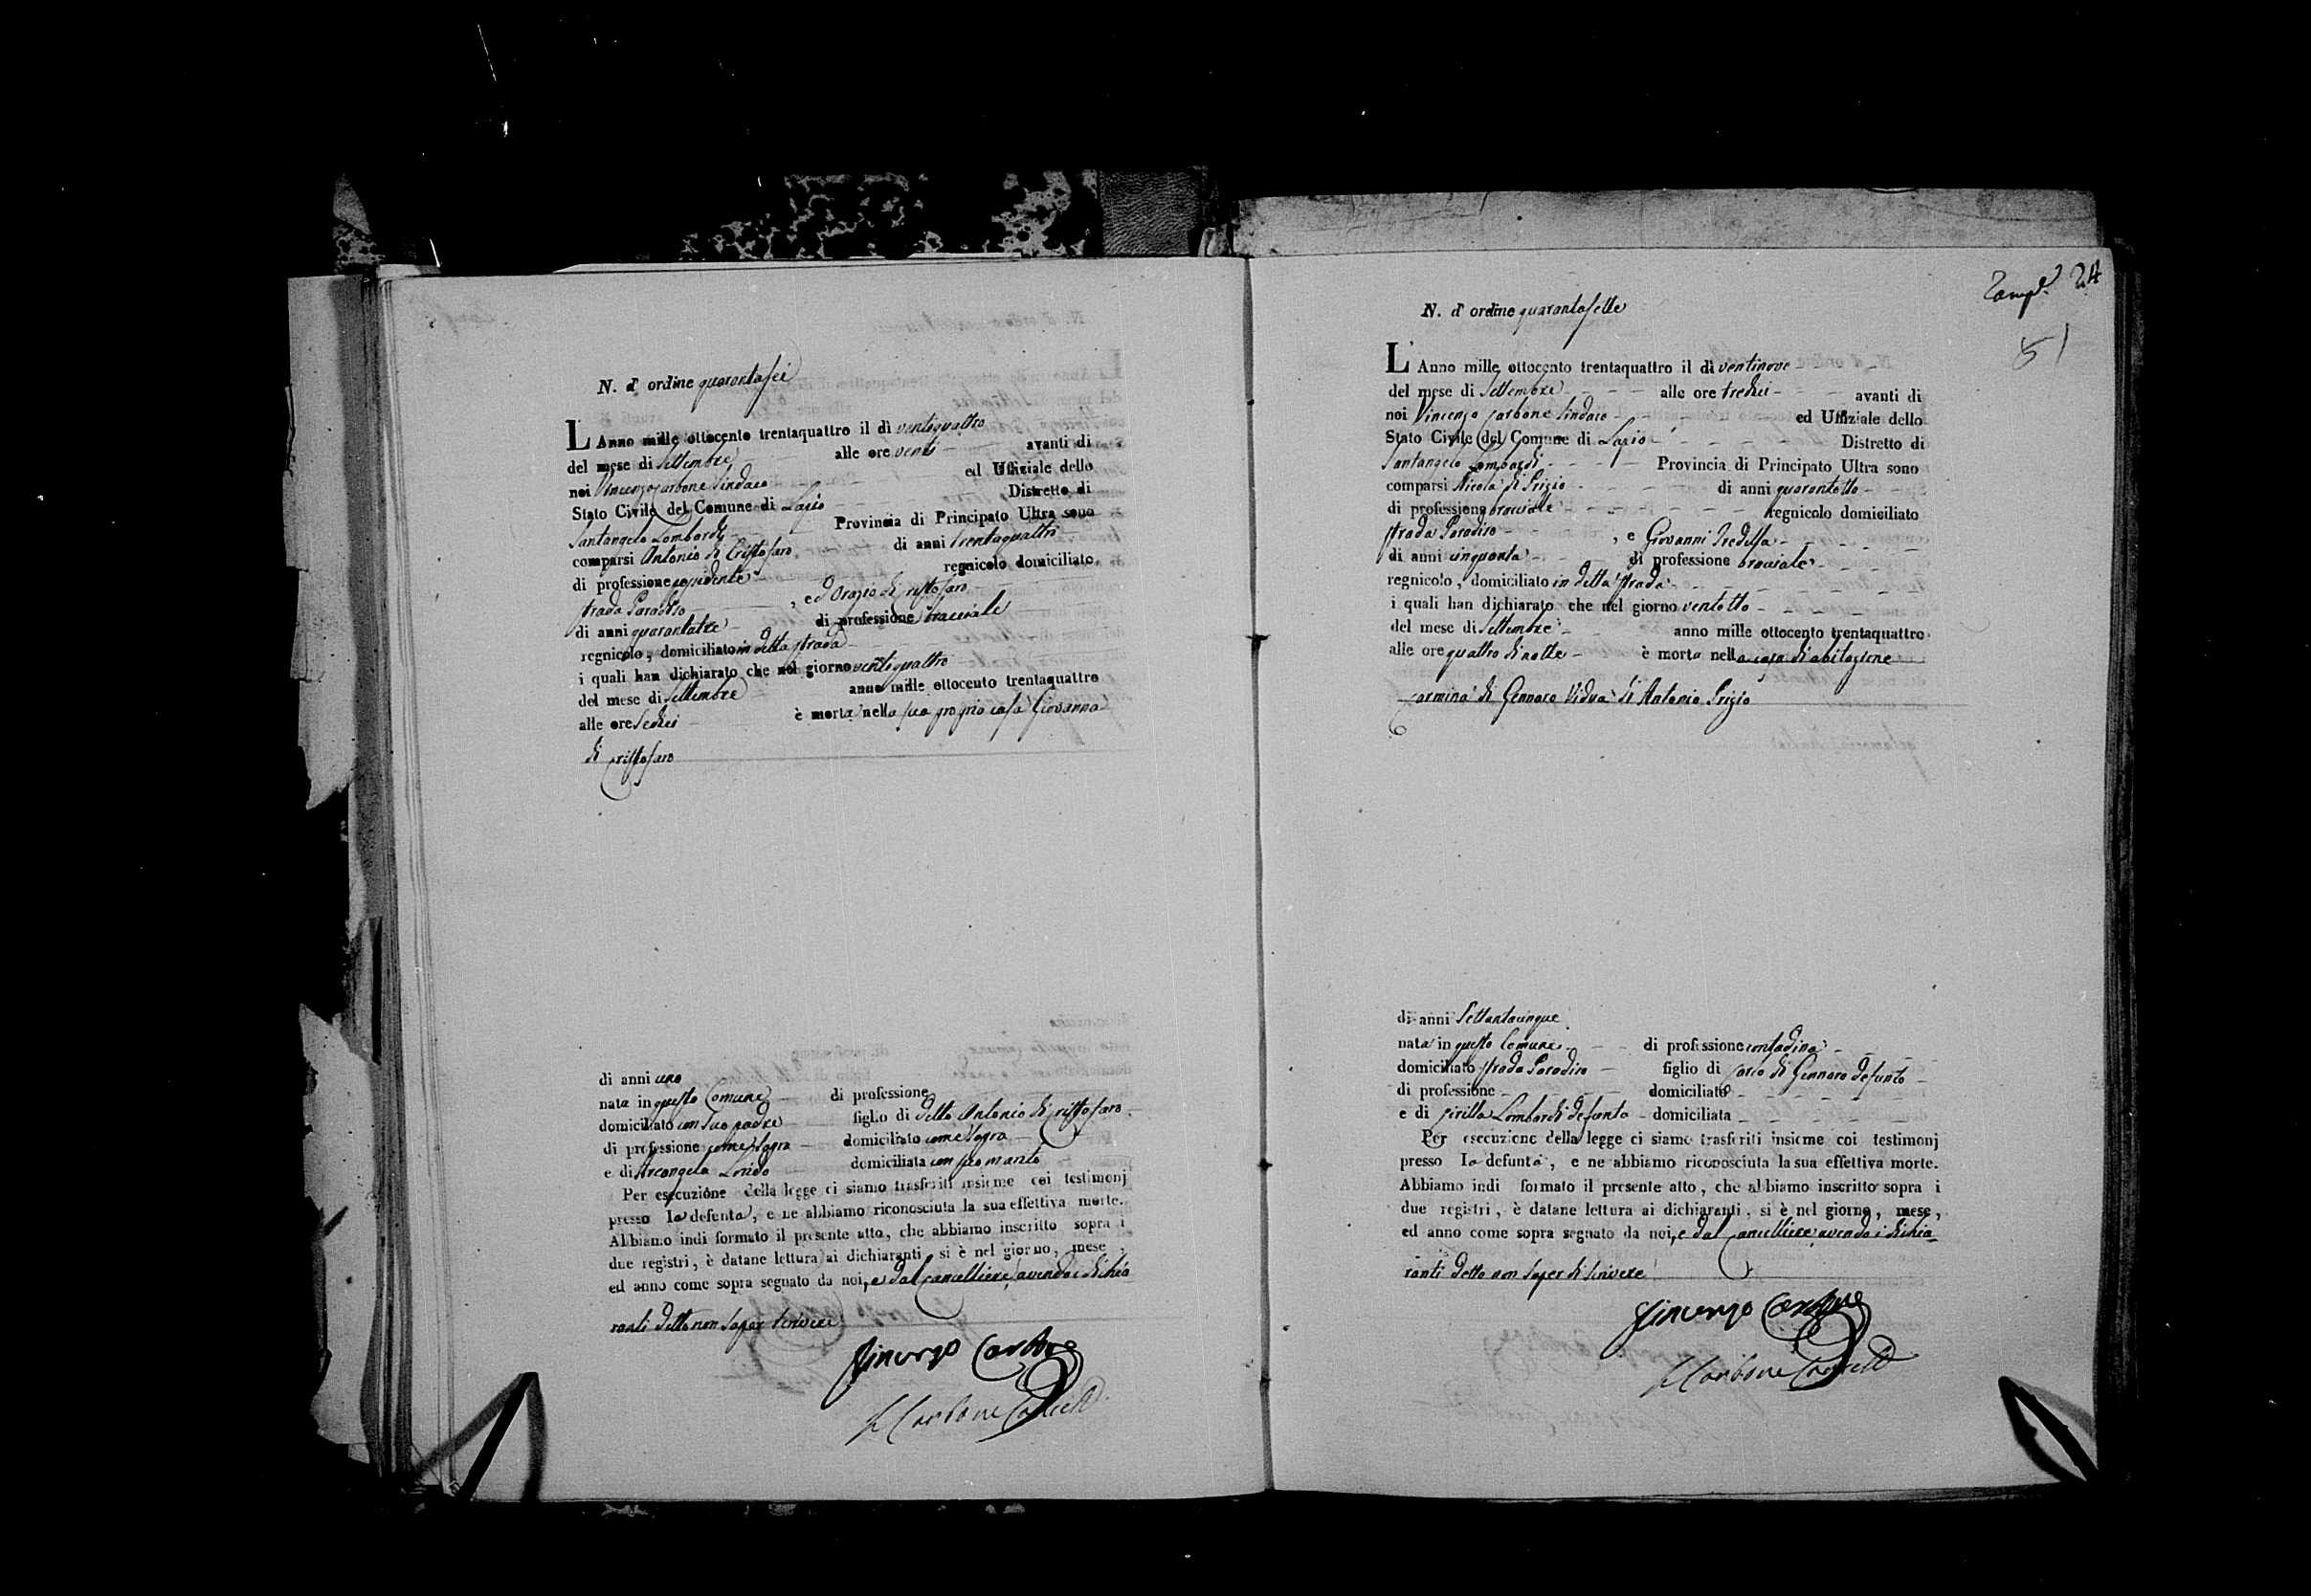 N. d' ordine quarantasei
L'Anno mille ottocento trentaquattro il dì ventiquattro
del mese di Settembre alle ore venti avanti di
noi Vincenzo Carbone Sindaco ed Uffiziale dello
Stato Civile del Comune di Distretto di
Santangelo Lombardi Provincia di Principato Ultra sono
comparsi Antonio di Cristofaro di anni trentaquattro
di professione regnicolo domiciliato
strada Paradiso , ed Orazio di Cristofaro
di anni quarantatre di professione bracciale
regnicolo, domiciliato in detta strada
i quali han dichiarato che nel giorno ventiquattro
del mese di Settembre anno mille ottocento trentaquattro
alle ore sedici è morta nella sua propria casa Giovanna
di Cristofaro
di anni uno
nata in questo Comune di professione
domiciliato con suo padre figlio di detto Antonio di Cristofaro
di professione come sopra domiciliato come sopra
e di Arcangela domiciliata con suo marito
Per esecuzione della legge ci siamo trasferiti insieme coi testimonj
presso la defunta, e ne abbiamo riconosciuta la sua effettiva morte.
Abbiamo indi formato il presente atto, che abbiamo inscritto sopra i
due registri, è datane lettura ai dichiaranti si è nel giorno, mese,
ed anno come sopra segnato da noi, e dal Cancelliere, avendo i dichia
ranti detto non saper scrivere
Vincenzo Carbone
Carbone Cancell
24
51
N. d' ordine quarantasette
L'Anno mille ottocento trentaquattro il dì ventinove
del mese di Settembre alle ore tredici avanti di
noi Vincenzo Carbone Sindaco ed Uffiziale dello
Stato Civile del Comune di Distretto di
Santangelo Lombardi Provincia di Principato Ultra sono
comparsi Nicola di Prizio di anni quarantotto
di professione bracciale regnicolo domiciliato
strada Paradiso , e Giovanni
di anni cinquanta di professione bracciale
regnicolo, domiciliato in detta strada
i quali han dichiarato che nel giorno ventotto
del mese di Settembre anno mille ottocento trentaquattro
alle ore quattro di notte è morta nella casa di abitazione
Carmina di Gennaro Vidua di Antonio Prizio
di anni Settantacinque
nata in questo Comune di professione contadina
domiciliato strada Paradiso figlio di Ciriaco di Gennaro defunto
di professione domiciliato
e di Lombardi defunta domiciliata
Per esecuzione della legge ci siamo trasferiti insieme coi testimonj
presso la defunta, e ne abbiamo riconosciuta la sua effettiva morte.
Abbiamo indi formato il presente atto, che abbiamo inscritto sopra i
due registri, è datane lettura ai dichiaranti, si è nel giorno, mese,
ed anno come sopra segnato da noi, e dal Cancelliere, avendo i dichia
ranti detto non saper di scrivere
Vincenzo Carbone
Carbone Cancell